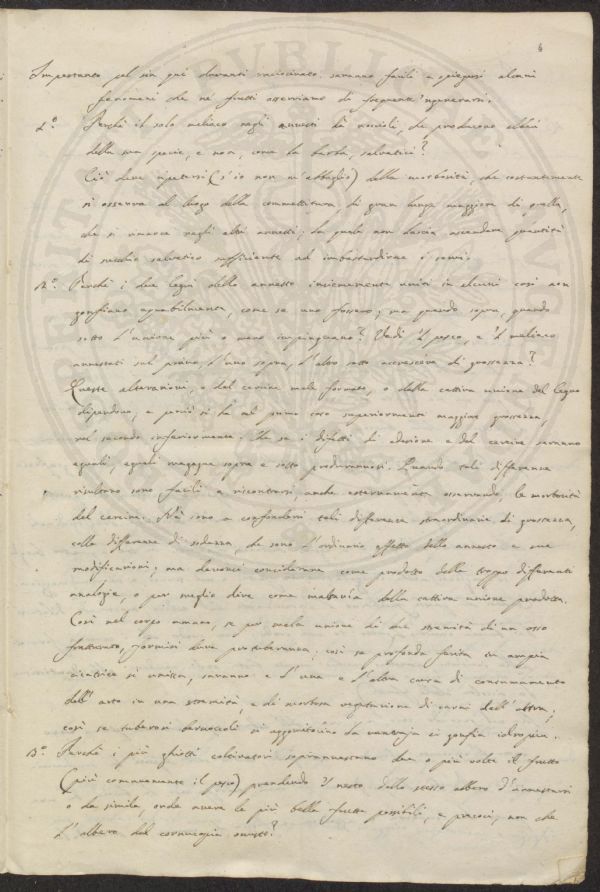 6
fenomeni che ne' frutti osserviamo di frequente
1.° Perchè il solo meliaco negli annesti dà noccioli, che producono albori
della sua specie, e non, come la barba, salvatici?
Ciò deve ripetersi (s'io non m'abbaglio) della morbosità, che costantemente
si osserva al luogo della commettitura, di gran lunga maggiore di quella,
che si rinviene negli altri annesti; la quale non lascia ascendere quantità
di succhio salvatico sufficiente ad imbastardirne i
2.° Perchè i due legni dello annesto insiememente uniti in alcuni casi non
gonfiano egualmente, come se uno fossero; ma quando sopra, quando
sotto l'unione più o meno impinguano? Vedi 'l pesco, e 'l meliaco
annestati sul pruno, l'uno sopra, l'altro sotto accrescere di grossezza?
Queste alterazioni, o dal cercine male formato, o dalla cattiva unione del legno
dipendono, e perciò si ha nel primo caso superiormente maggiore grossezza,
nel secondo inferiormente. Che se i difetti di adesione e del cercine saranno
eguali, eguali magagne sopra e sotto produrrannosi. Quando tali differenze
risultano sono facili a riscontrarsi, anche esternamente osservando, le morbosità
del cercine. Nè sono a confondersi tali differenze straordinarie di grossezza,
colle differenze di sodezza, che sono l'ordinario effetto dello annesto e sue
modificazioni; ma devonsi considerare come prodotto delle troppo differenti
analogie, o per meglio dire come malattia della cattiva unione prodotta.
Così nel corpo umano, se per mala unione di due estremità di un osso
fratturato, formisi dura protuberanza; così se profonda ferita in ampia
cicatrice si unisca, saranno e l'una e l'altra causa di consumamento
dell'arto in una estremità, e di morbosa vegetazione di carni dell'altra;
così se tuberosi bernoccoli
3.° Perchè i più ghiotti coltivatori soprannestano due o più volte il frutto
(più comunemente il pesco) prendendo 'l nesto dello stesso albero d'annestarsi
o da simile, onde avere le più belle frutta possibili, e precoci; non che
l'albero del cornucopia onusto?